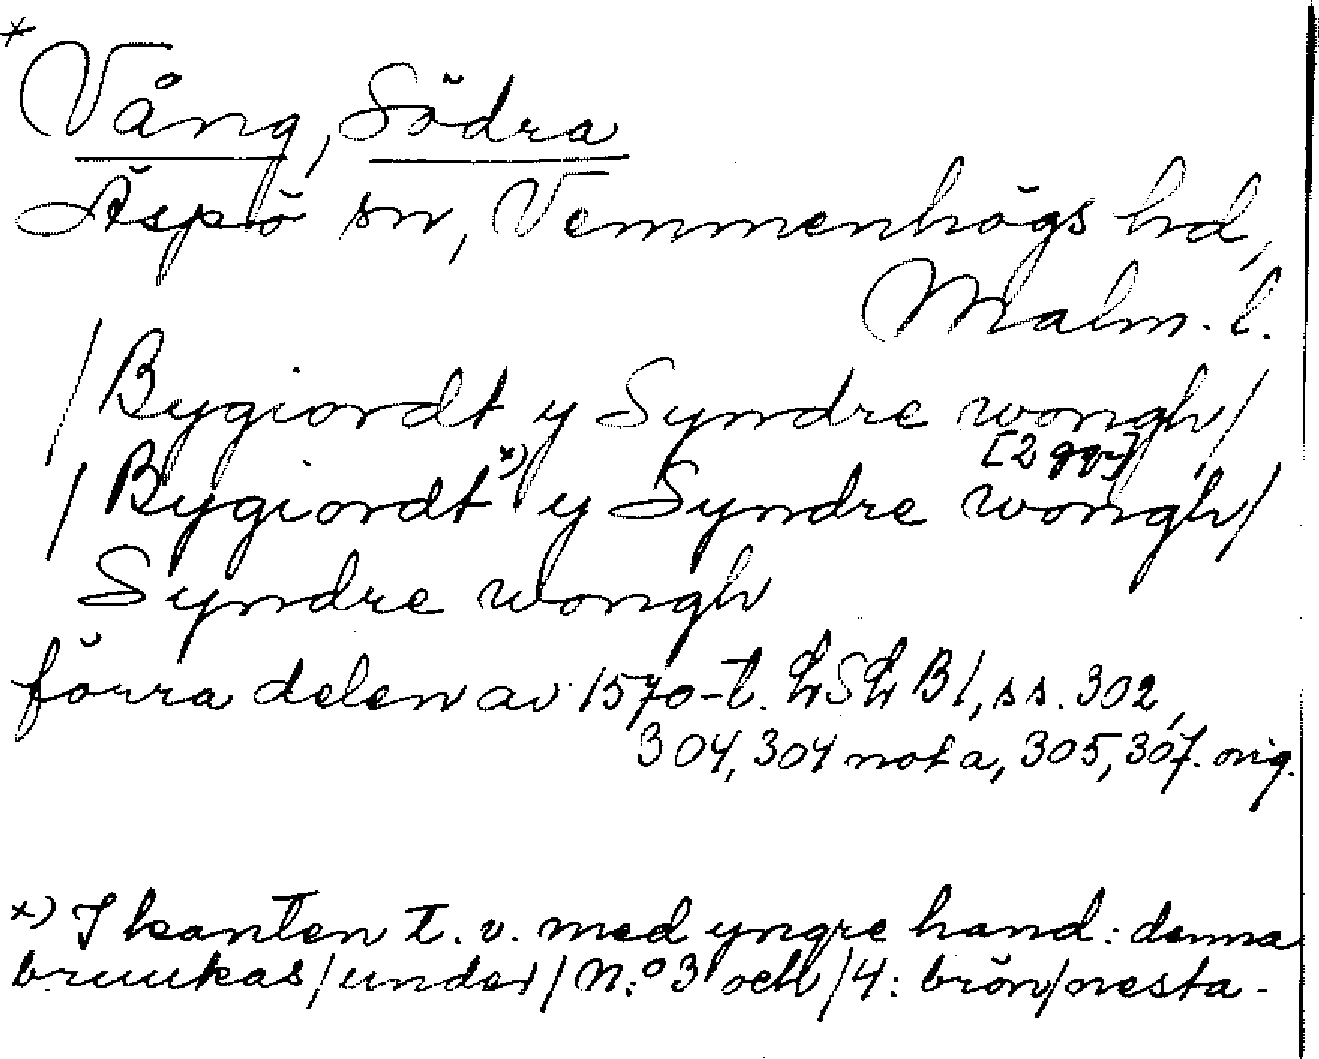 *
Vång, Södra
Äspö sn, Vemmenhögs hd,
Malm. l.
/Bygiordt y Syndre wongh/
[2 ggr]
/Bygiordt x) y Syndre wongh/
Syndre wongh
förra delen av 1570-t. LSL B1, ss. 302,
304, 304 nota, 305, 307. orig.
x) I kanten t. v. med yngre hand: denna
bruukas/under/N:o 3 och/4: brön/nesta-